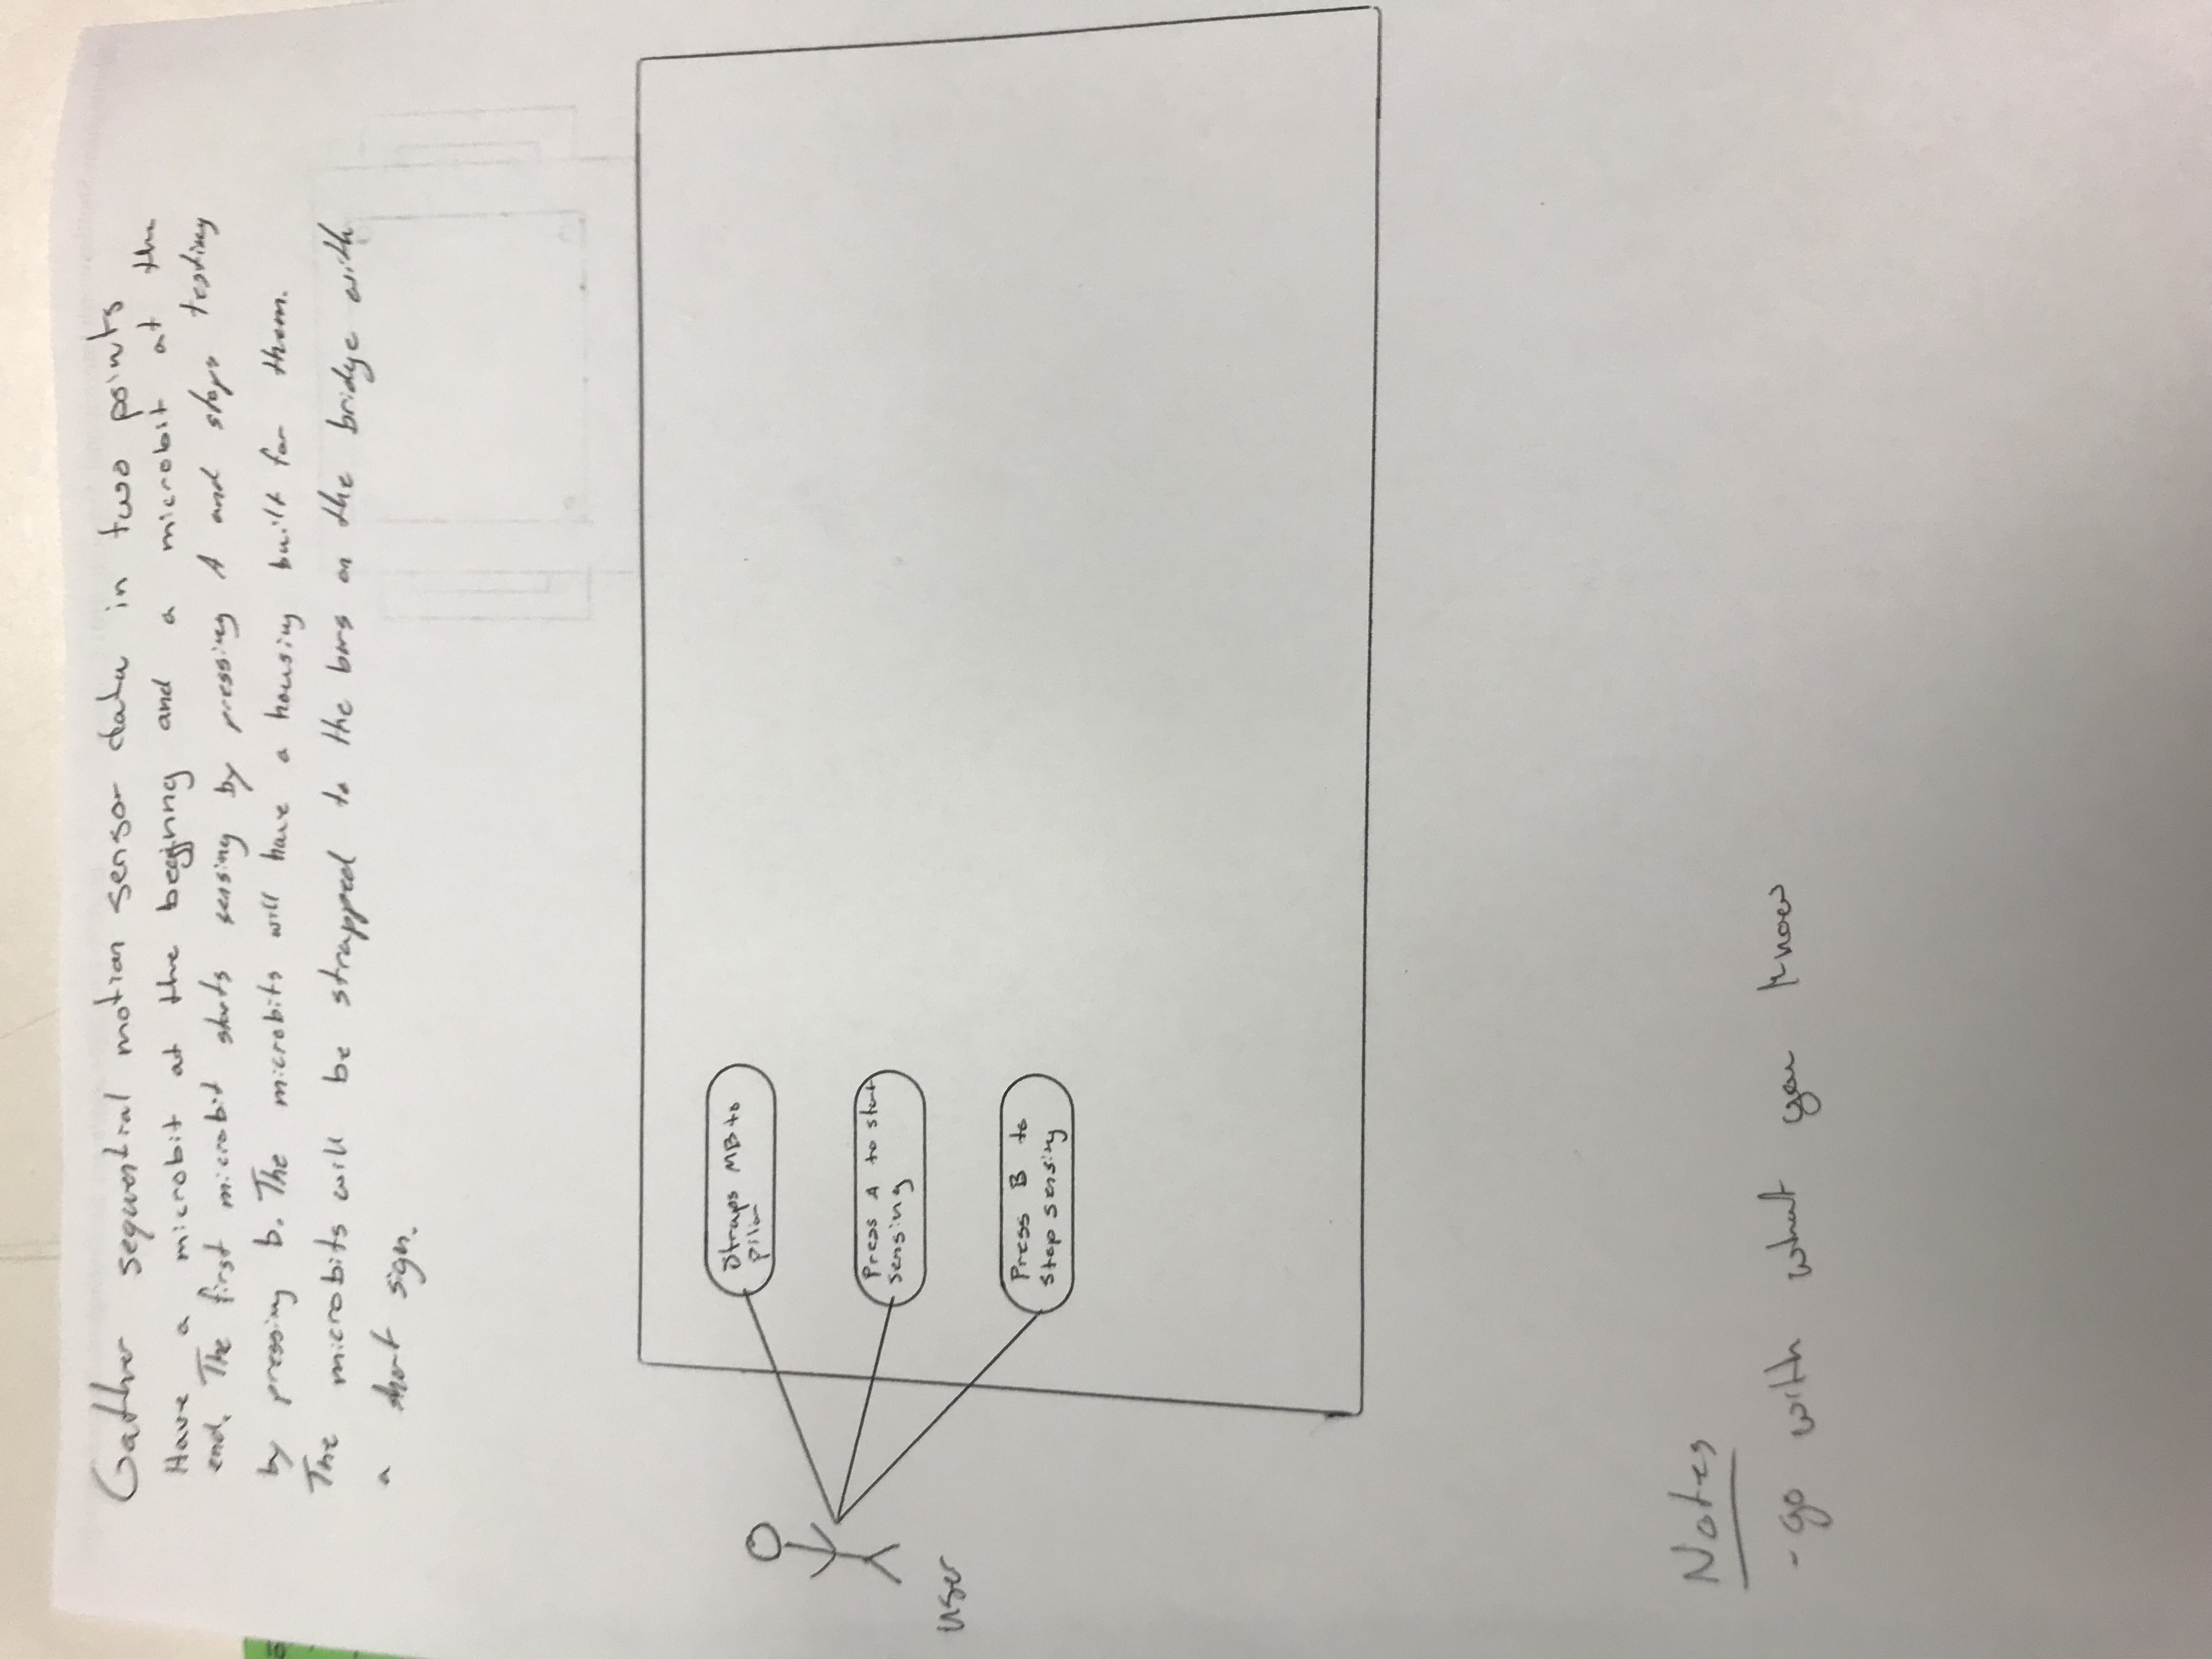 Gather sequential motion sensor data in two points
Have a microbit at the beginng and a microbit at the
end. The first microbit starts sensing by pressing A and stops testing
by pressing b. The microbits will have a housing built for them.
The microbits will be strapped to the bars on the bridge with
a short sign.
Straps MB to
pilar
Press A to start
sensing
user
Press B to
stop sensing
Notes
- go with what you know